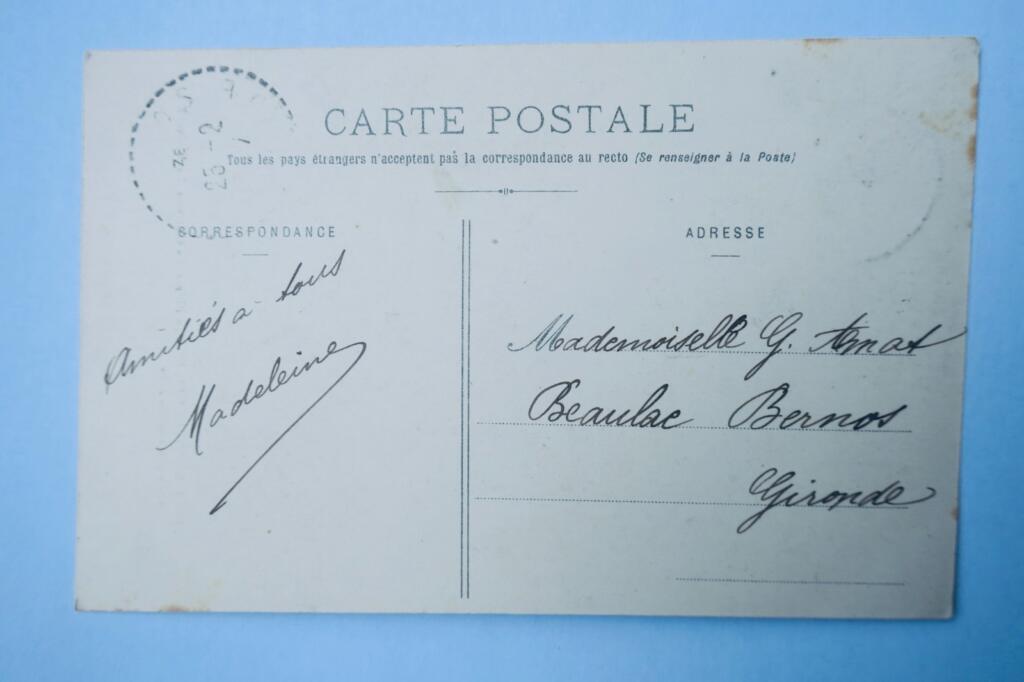 CARTE POSTALE
Tous les pays étrangers n'acceptent pas la correspondance au recto (Se renseigner à la Poste)
CORRESPONDANCE
Amitiés à tous
Madeleine
ADRESSE
Mademoiselle G. Amat
Beaulac Bernos
Gironde
25-2